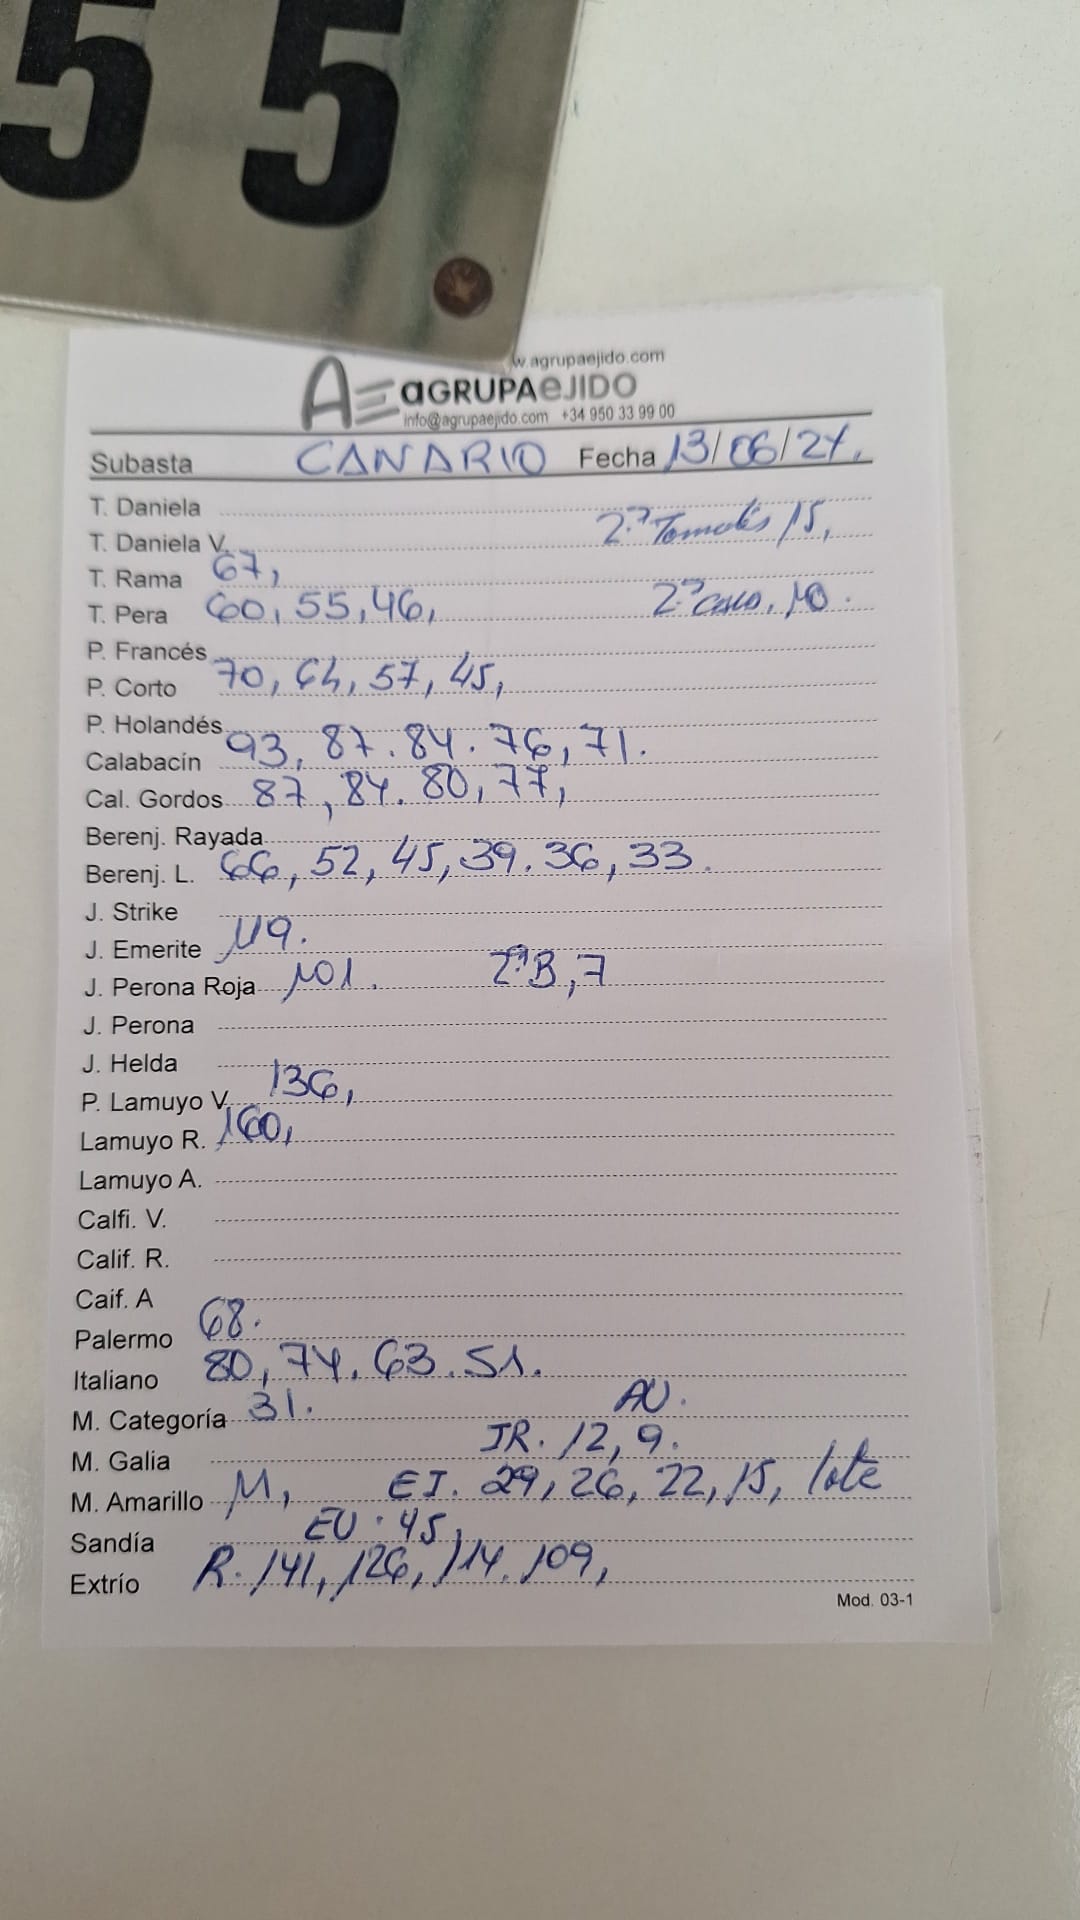 55
w.agrupaejido.com
AE aGRUPAeJIDO
info@agrupaejido.com +34 950 33 99 00
Subasta CANARIO Fecha 13/06/24.
T. Daniela
T. Daniela V. 2.ª Tomates 15,
T. Rama 67,
T. Pera 60, 55, 46, 2.ª 10.
P. Francés
P. Corto 70, 64, 57, 45,
P. Holandés
Calabacín 93, 87. 84. 76, 71.
Cal. Gordos 87, 84. 80, 77,
Berenj. Rayada
Berenj. L. 66, 52, 45, 39. 36, 33.
J. Strike
J. Emerite 119.
J. Perona Roja 101. 2ªB, 7
J. Perona
J. Helda
P. Lamuyo V. 136,
Lamuyo R. 160,
Lamuyo A.
Calfi. V.
Calif. R.
Caif. A
Palermo 68.
Italiano 80, 74. 63. 51.
M. Categoría 31. AU.
M. Galia JR. 12, 9.
M. Amarillo 11, EJ. 29, 26, 22, 15, lote
Sandía EU. 45,
Extrío R. 141, 126, 114. 109,
Mod. 03-1